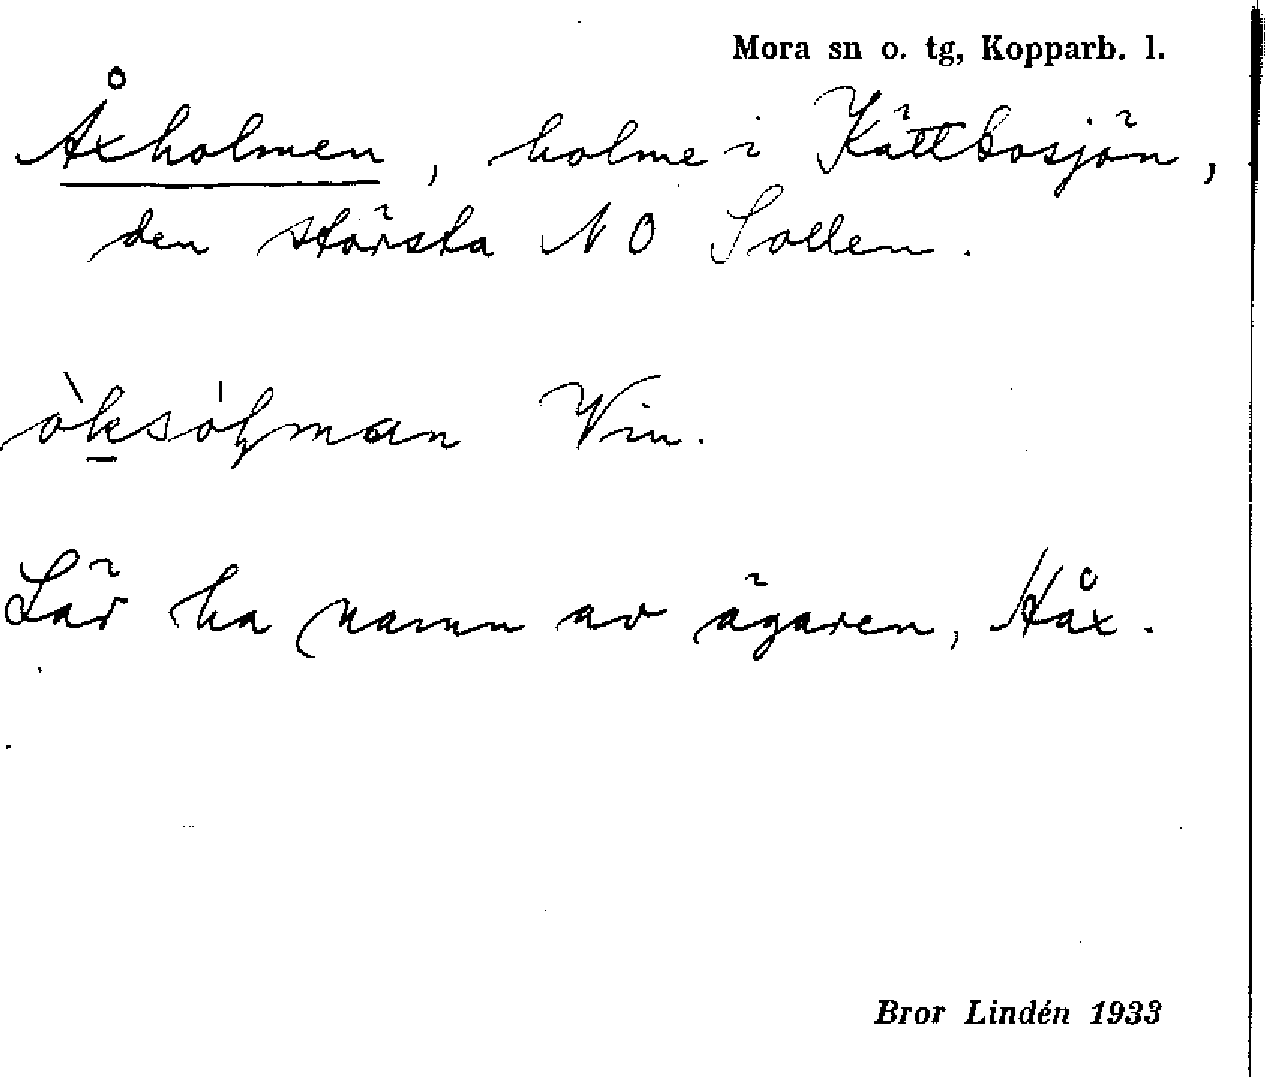 Mora sn o. tg, Kopparb. l.
Åxholmen, holme i Kättbosjön,
den största NO Sollen.
Vin.
Lär ha namn av ägaren, Håx.
Bror Lindén 1933